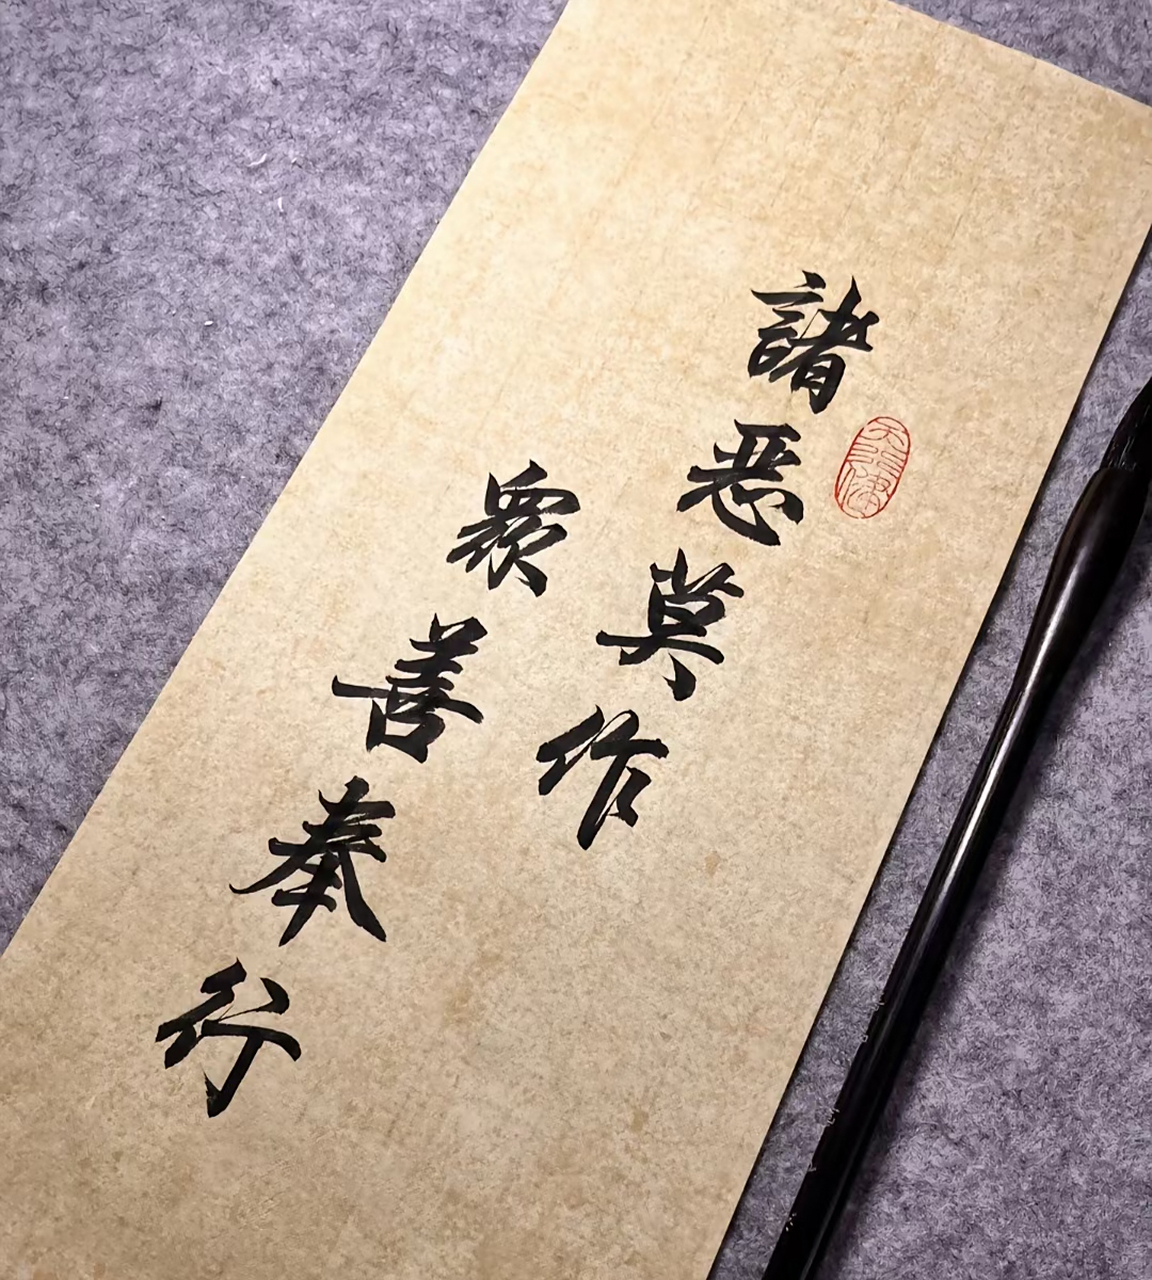 諸恶莫作
衆善奉行